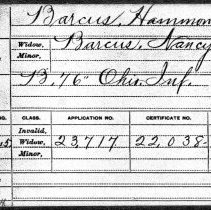 Barcus, Hammon
Widow, Barcus, Nancy
Minor,
B, 76" Ohio Inf.
CLASS. APPLICATION NO. CERTIFICATE NO.
Invalid,
Widow, 23,717 22,038
Minor,